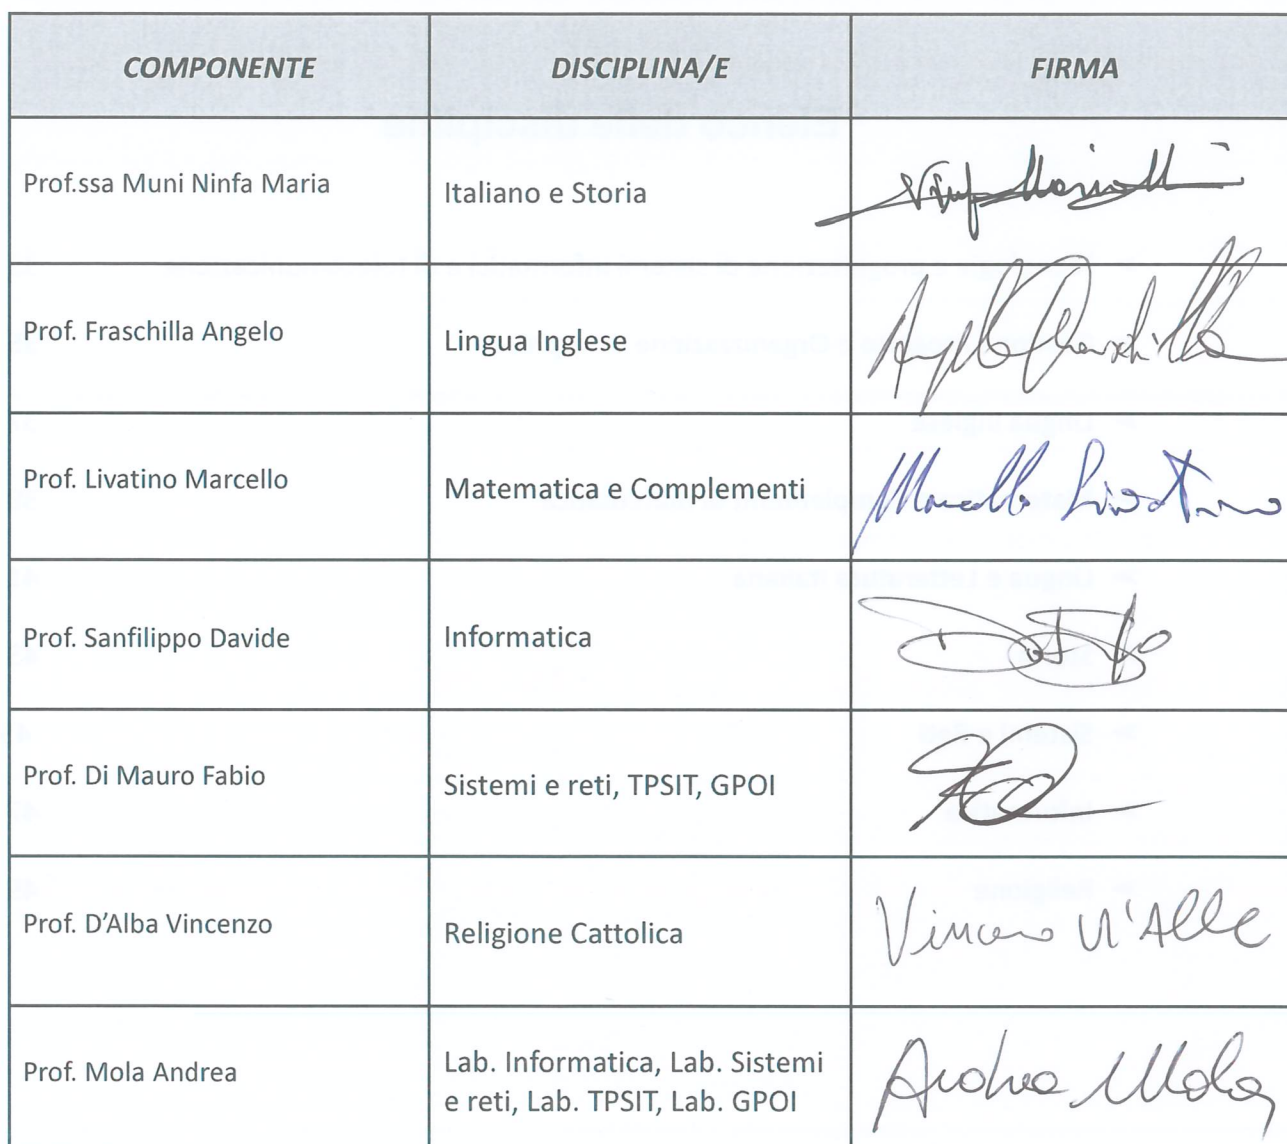 COMPONENTE DISCIPLINA/E FIRMA
Prof.ssa Muni Ninfa Maria Italiano e Storia
Prof. Fraschilla Angelo Lingua Inglese Angelo Fraschilla
Prof. Livatino Marcello Matematica e Complementi Marcello Livatino
Prof. Sanfilippo Davide Informatica
Prof. Di Mauro Fabio Sistemi e reti, TPSIT, GPOI
Prof. D'Alba Vincenzo Religione Cattolica Vincenzo D'Alba
Prof. Mola Andrea Lab. Informatica, Lab. Sistemi
e reti, Lab. TPSIT, Lab. GPOI Andrea Mola